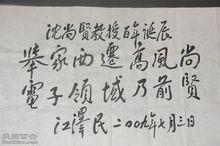 沈尚賢教授百年诞辰
舉家西遷高風尚
電子領域乃前賢
江澤民二00九年七月三日